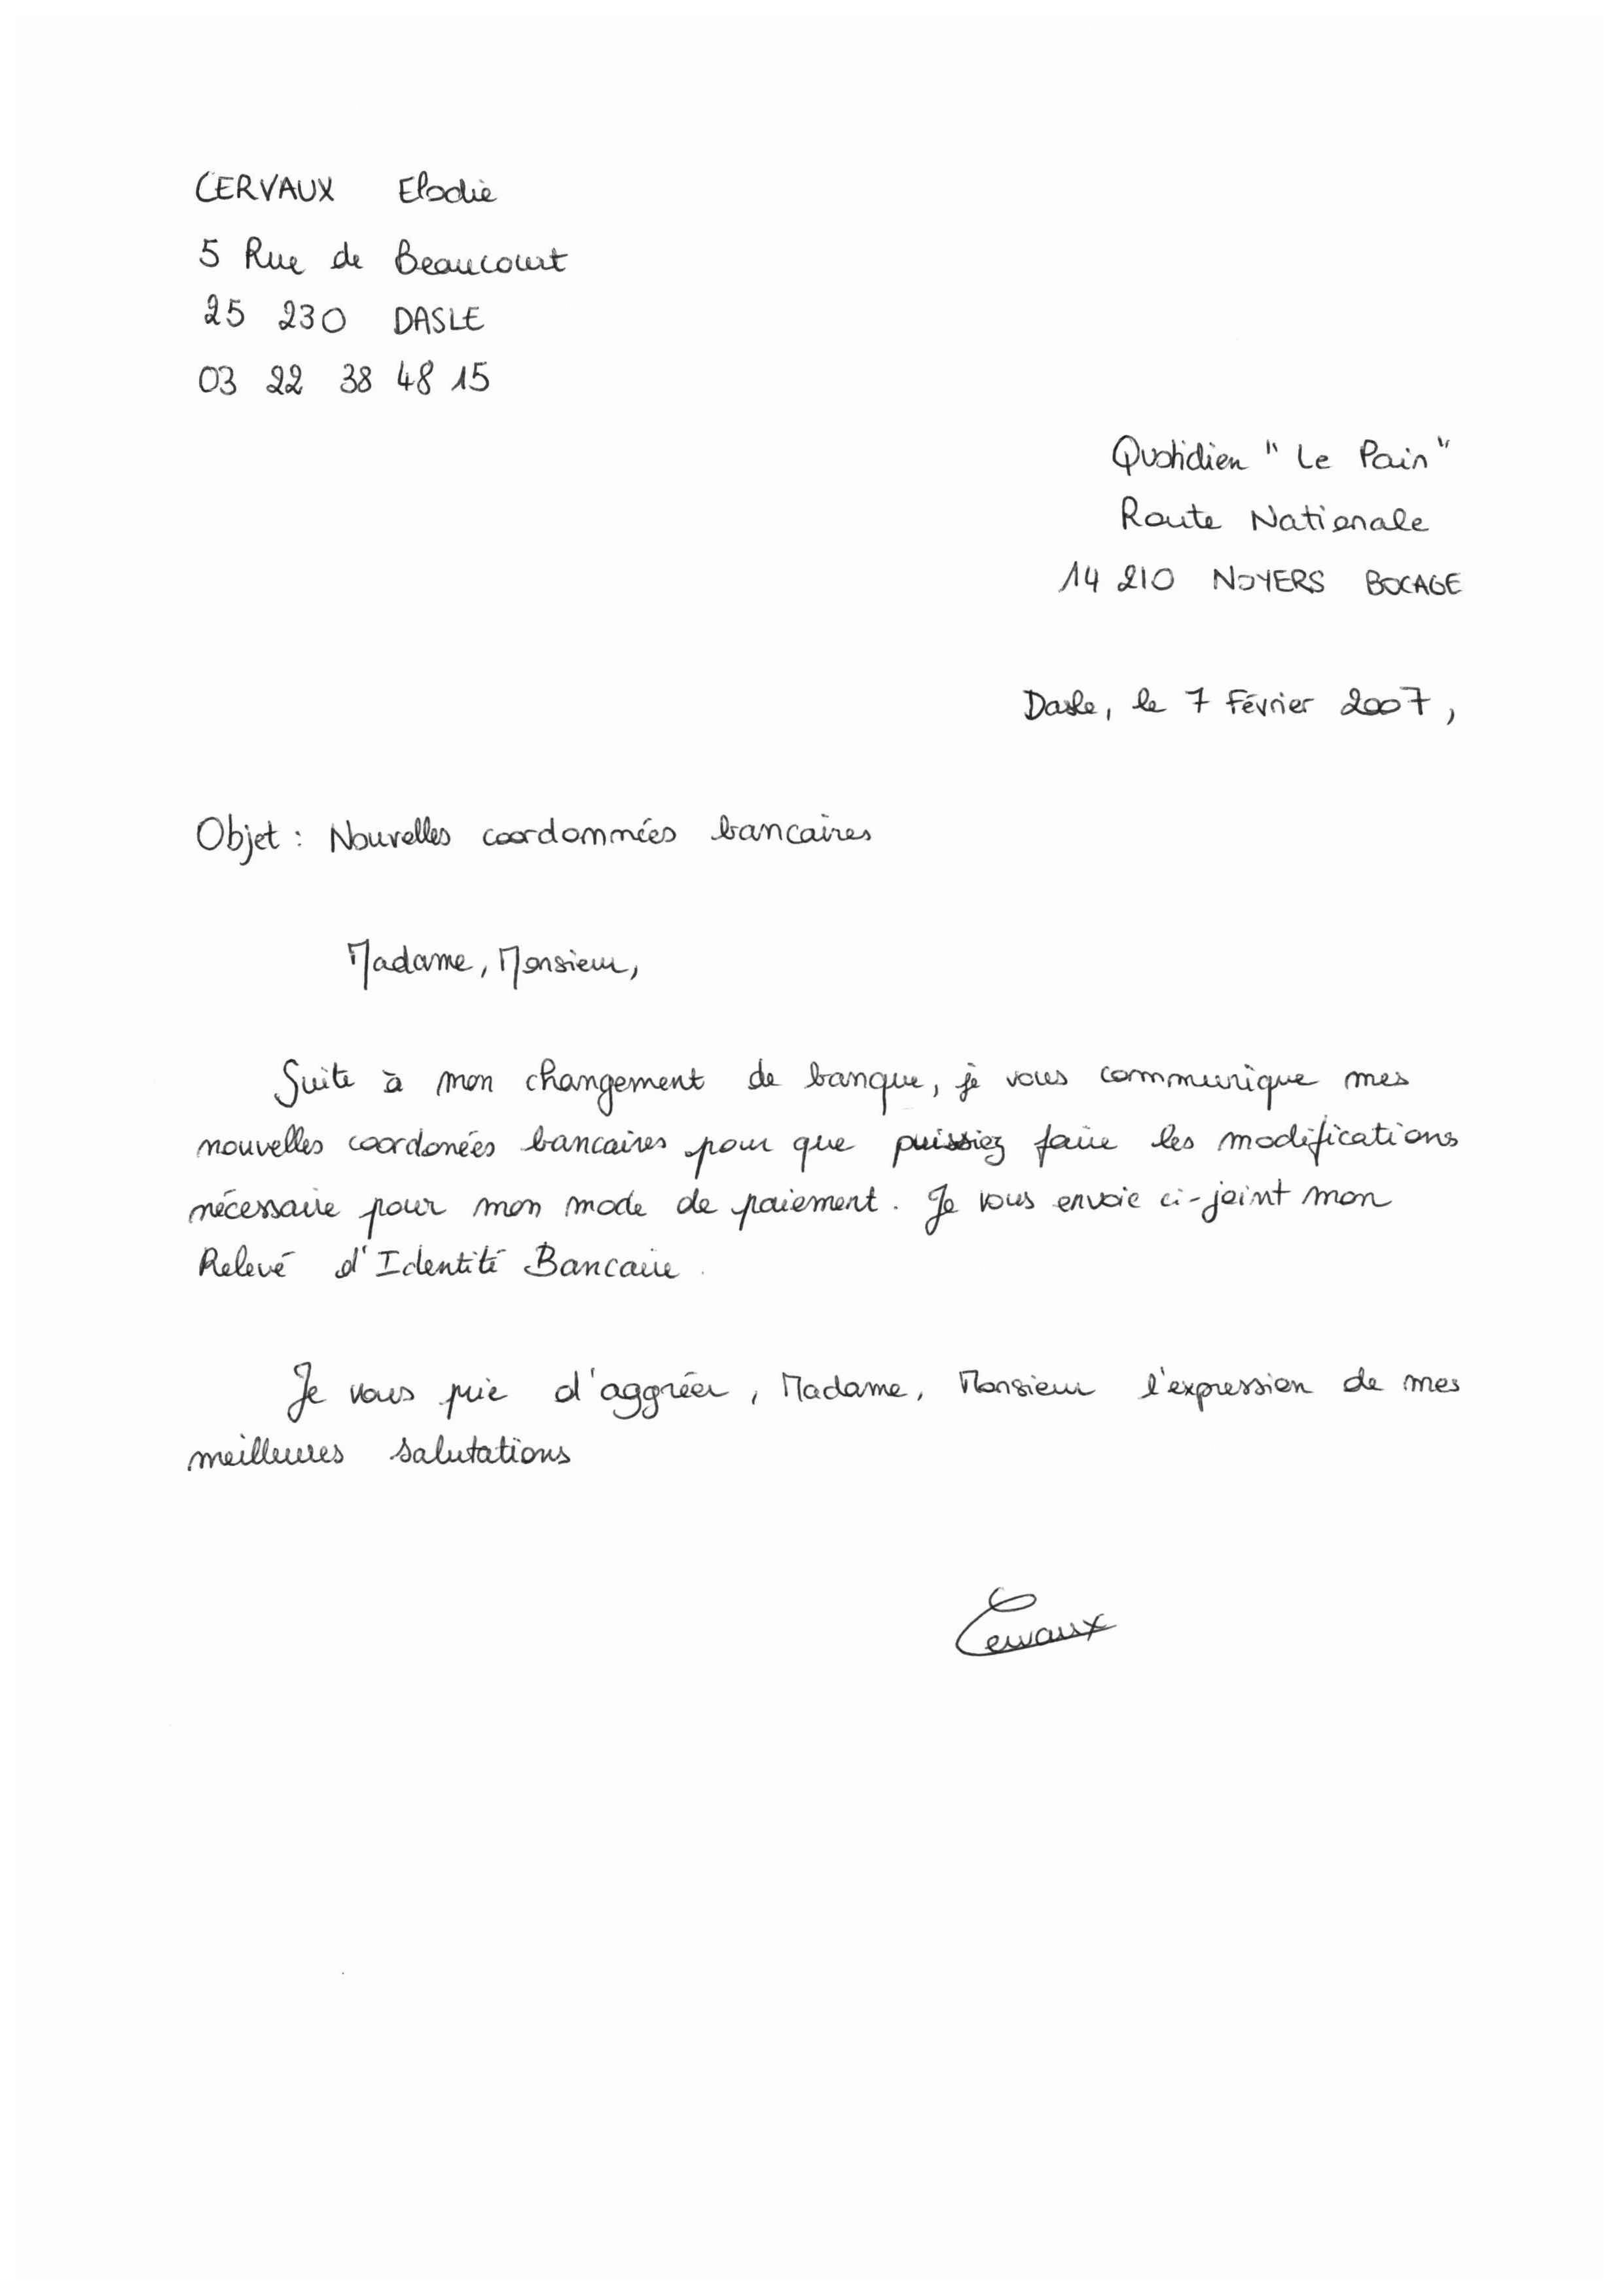 CERVAUX Elodie
5 Rue de Beaucourt
25 230 DASLE
03 22 38 48 15
Quotidien " Le Pain "
Route Nationale
14 210 NOYERS BOCAGE
Dasle, le 7 Février 2007,
Objet : Nouvelles coordonnées bancaires
Madame, Monsieur,
Suite à mon changement de banque, je vous communique mes
nouvelles coordonées bancaires pour que puissiez faire les modifications
nécessaire pour mon mode de paiement. Je vous envoie ci-joint mon
Relevé d'Identité Bancaire.
Je vous prie d'aggréer, Madame, Monsieur l'expression de mes
meilleures salutations
Cervaux